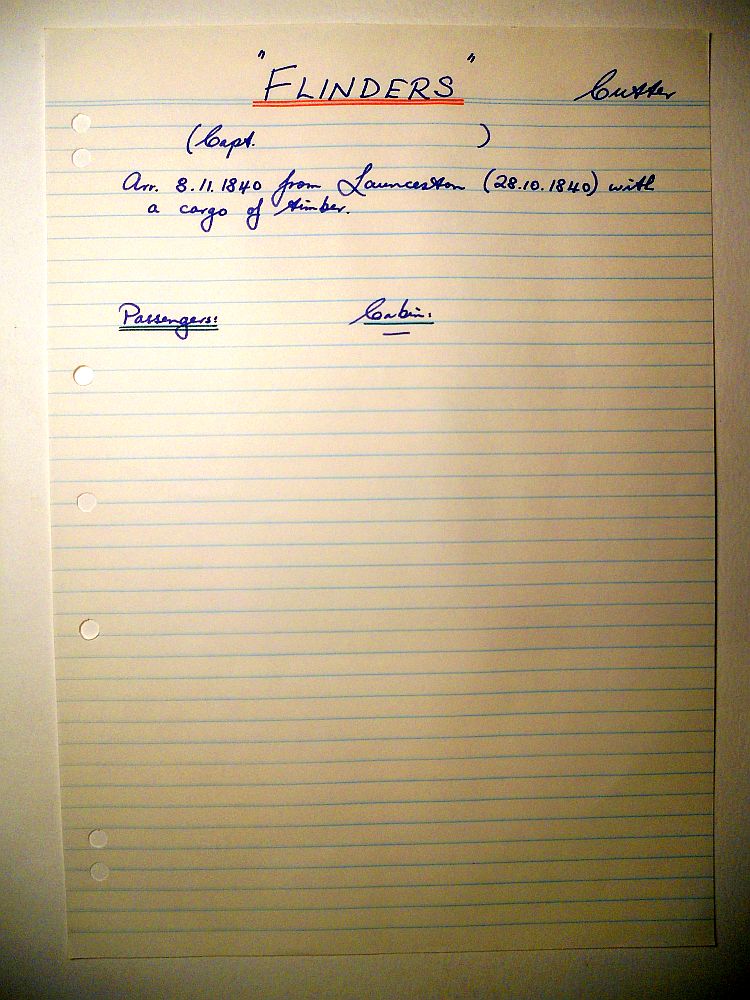 "FLINDERS" Cutter
(Capt. )
Arr. 8.11.1840 from Launceston (28.10.1840) with
a cargo of timber.
Passengers: Cabin:
—